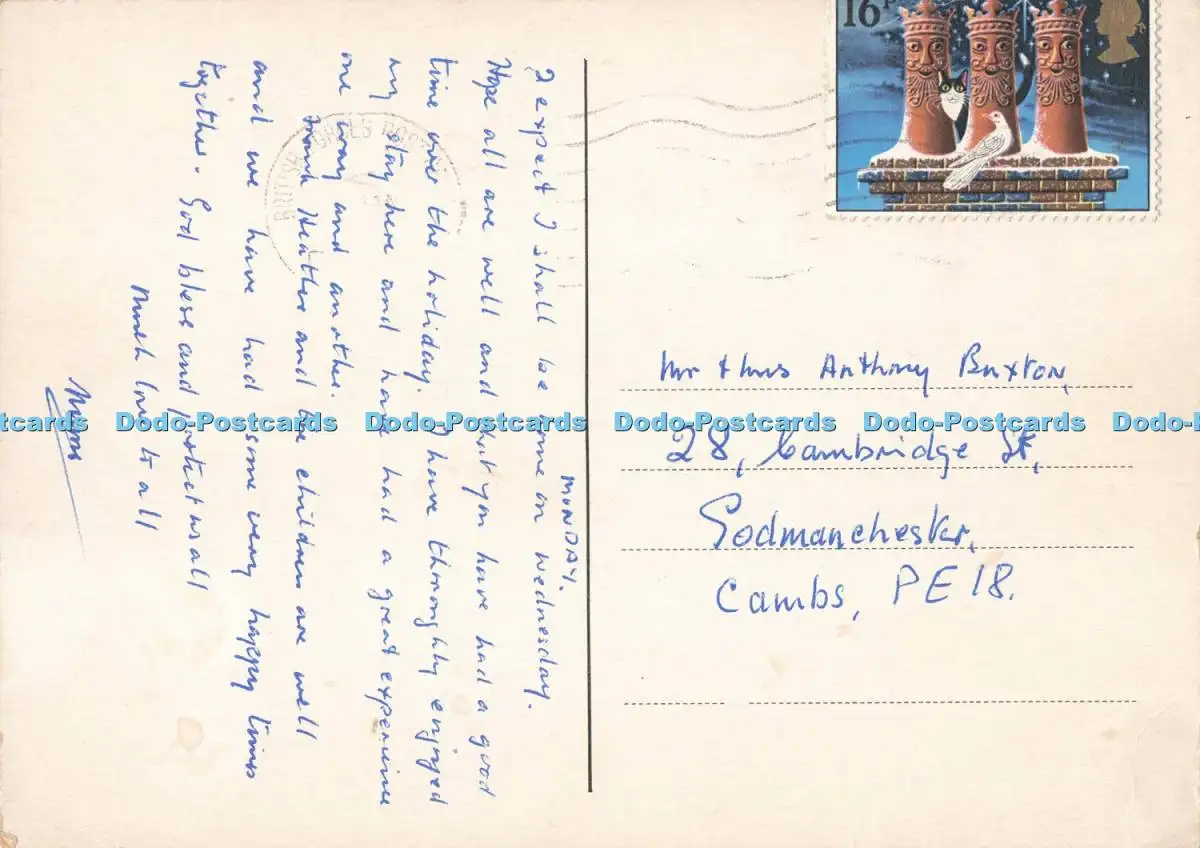 MONDAY.
I expect I shall be home on Wednesday.
Hope all are well and that you have had a good
time over the holiday. I have throughly enjoyed
my stay here and have had a great experience
one way and another.
Heather and the children are well
and we have had some very happy times
together. God bless and protect us all
Much love to all
Mum
16P
BRITISH FORCES POST
Mr & Mrs Anthony Buxton,
28, Cambridge St,
Godmanchester,
Cambs, PE18.
Dodo-Postcards Dodo-Postcards Dodo-Postcards Dodo-Postcards Dodo-Postcards